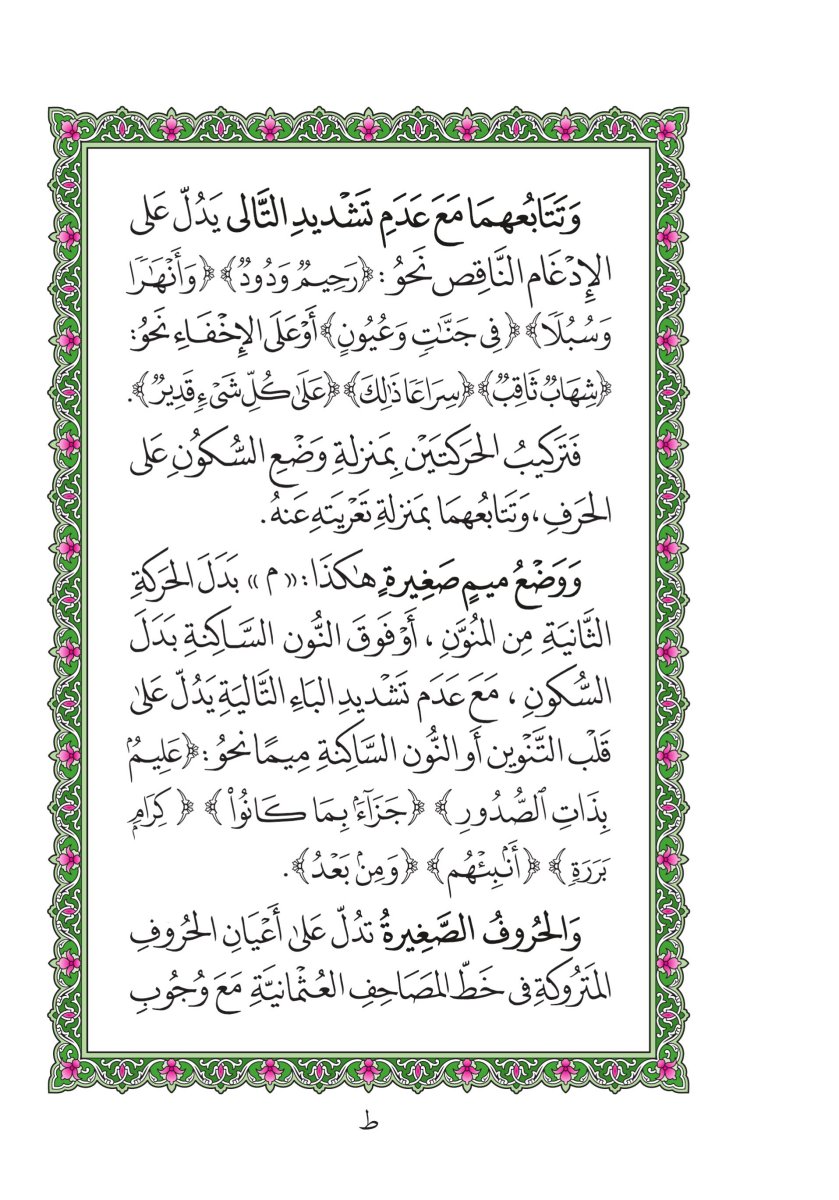 وَتَتَابُعهمَا مَعَ عَدَمِ تَشْديدِ التَّالى يَدُلّ عَلى
الإِدْغَام النَّاقِص نَحوُ : ﴿رَحِيمٞ وَدُودٞ﴾ ﴿وَأَنۡهَٰرٗا
وَسُبُلٗا﴾ ﴿فِي جَنَّٰتٖ وَعُيُونٍ﴾ أَوْعَلَى الإِخْفَاءِ نَحوُ:
﴿شِهَابٞ ثَاقِبٞ﴾ ﴿سِرَاعٗا ذَٰلِكَ﴾ ﴿عَلَىٰ كُلِّ شَيۡءٖ قَدِيرٞ﴾.
فَتَركيبُ الحَرَكتَيَنْ بِمَنزلةِ وَضْعِ السُّكُونِ عَلى
الحَرفِ ،وَتَتَابُعهمَا بمَنزلةِ تَعْريَتهِ عَنهُ.
وَوَضْعُ ميمٍ صَغِيرةٍ هٰكذَا : « م » بَدَلَ الحَرَكةِ
الثَّانيَةِ مِن المُنوَّنِ ، أَوْ فَوقَ النُّون السَّاكِنةِ بَدَلَ
السُّكُونِ ، مَعَ عَدَم تَشْديدِ البَاءِ التَّاليَةِ يَدُلّ عَلىٰ
قَلْب التَّنْوين أَو النُّون السَّاكِنةِ مِيمًا نحوُ : ﴿عَلِيمُۢ
بِذَاتِ ٱلصُّدُورِ﴾ ﴿جَزَآءَۢ بِمَا كَانُواْ﴾ ﴿كِرَامِۭ
بَرَرَةٖ﴾ ﴿أَنۢبِئۡهُم﴾ ﴿وَمِنۢ بَعۡدُ﴾.
وَالحُروفُ الصَّغِيرةُ تدُلّ عَلىٰ أَعْيَانِ الحُروفِ
المَتروُكةِ فى خَطّ المصَاحِفِ العُثْمانيَّةِ مَعَ وُجُوبِ
ط